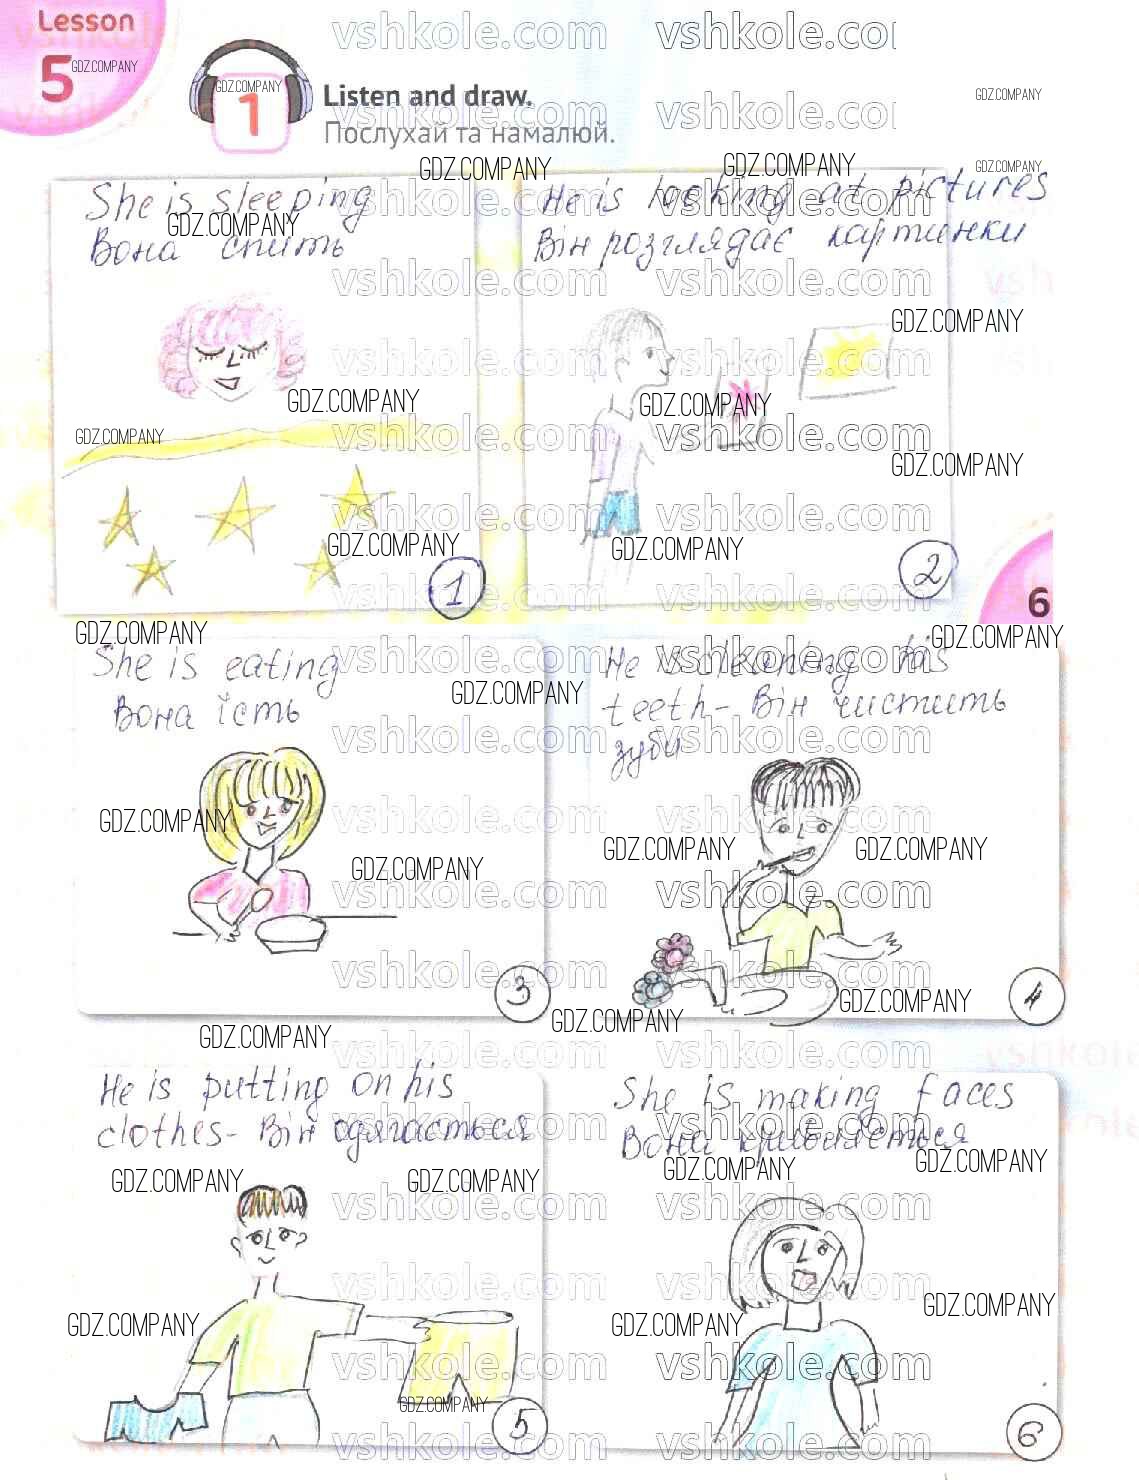 Lesson
5
1
Listen and draw.
Послухай та намалюй.
She is sleeping
Вона спить
He is looking at pictures
Він розглядає картинки
1
2
6
She is eating
Вона їсть
He is cleaning his
teeth - Він чистить
зуби
3
4
He is putting on his
clothes - Він одягається
She is making faces
Вона кривляється
5
6
vshkole.com
GDZ.COMPANY